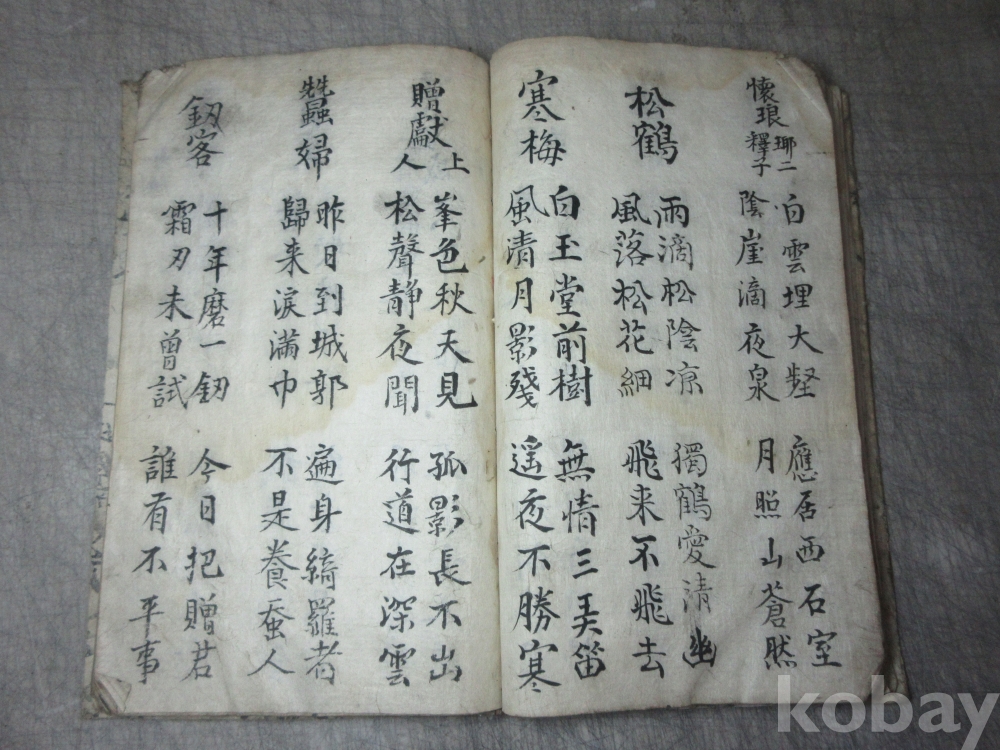 懷琅琊二釋子
白雲埋大壑
陰崖滴夜泉
應居西石室
月照山蒼然
松鶴
雨滴松陰凉
風落松花細
獨鶴愛清幽
飛来不飛去
寒梅
白玉堂前樹
風清月影殘
無情三弄笛
遥夜不勝寒
贈獻上人
峯色秋天見
松聲靜夜聞
孤影長不出
行道在深雲
蠶婦
昨日到城郭
歸来淚滿巾
遍身綺羅者
不是養蚕人
釼客
十年磨一釼
霜刃未曾試
今日把贈君
誰有不平事
kobay